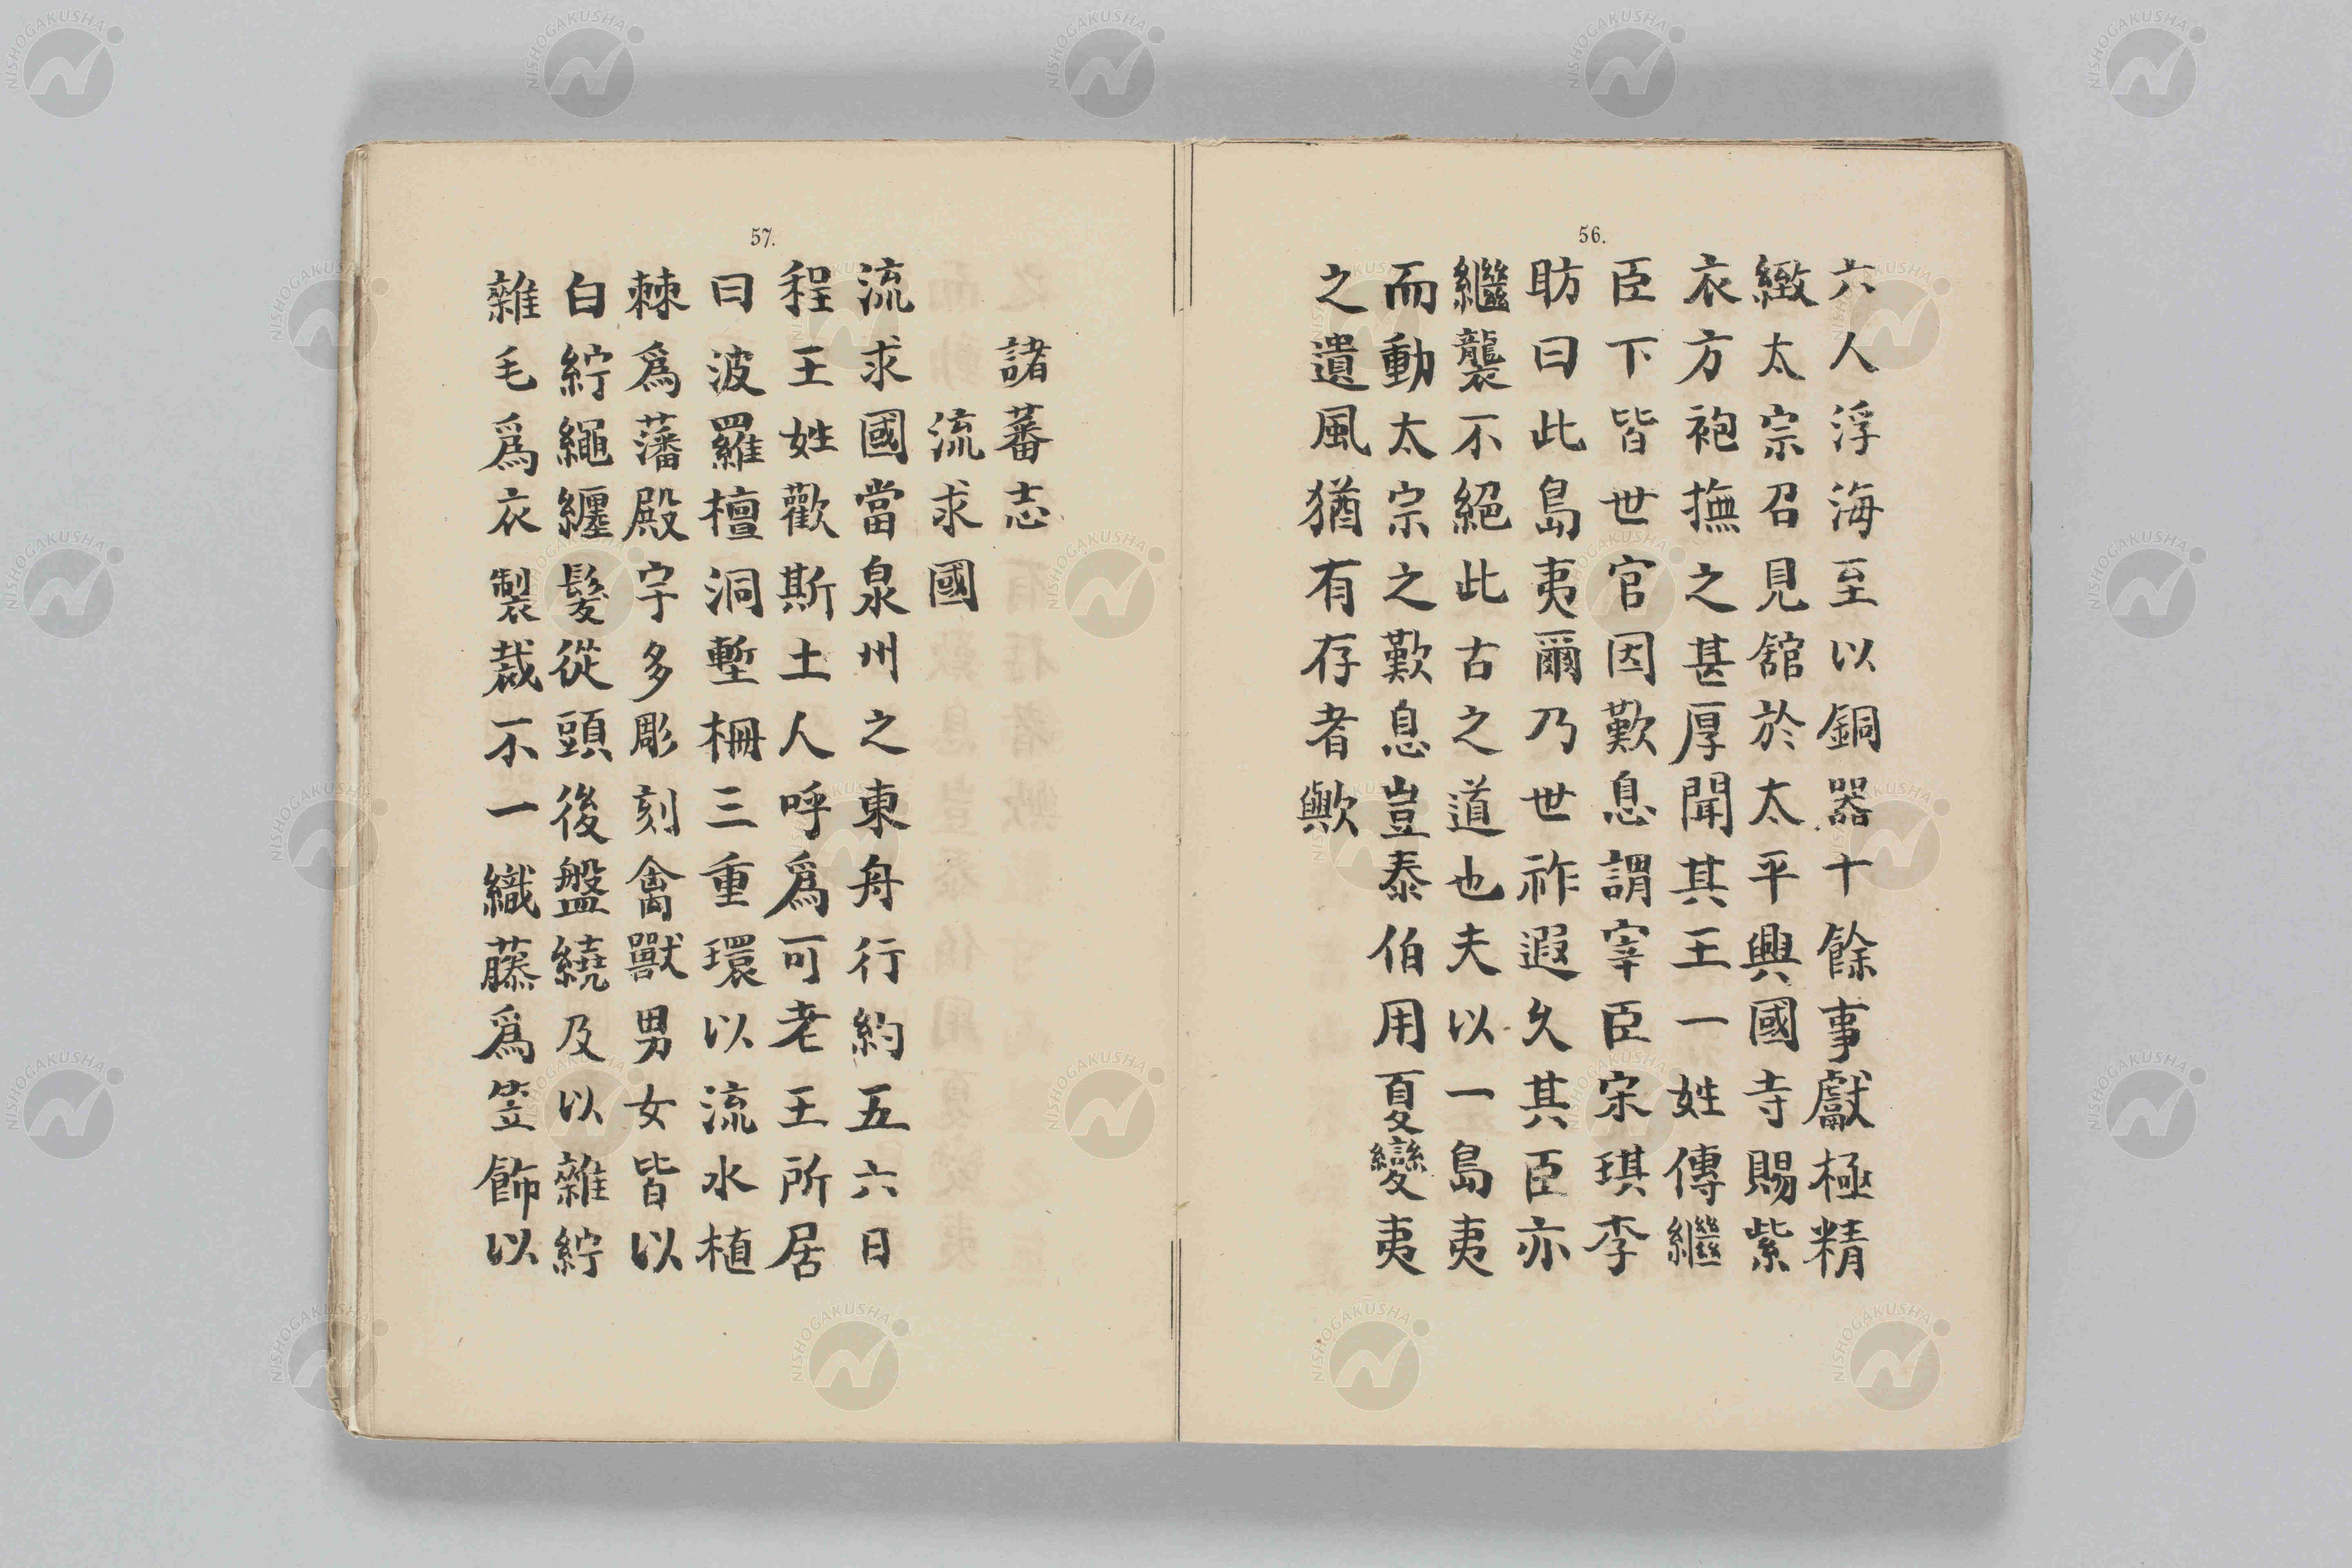 56.
六人浮海至以銅器十餘事獻極精
緻太宗召見舘於太平興國寺賜紫
衣方袍撫之甚厚聞其王一姓傳繼
臣下皆世官因歎息謂宰臣宋琪李
昉曰此島夷爾乃世祚遐久其臣亦
繼襲不絕此古之道也夫以一島夷
而動太宗之歎息豈泰伯用夏變夷
之遺風猶有存者歟
57.
諸蕃志
流求國
流求國當泉州之東舟行約五六日
程王姓歡斯土人呼爲可老王所居
曰波羅檀洞塹柵三重環以流水植
棘爲藩殿宇多彫刻禽獸男女皆以
白紵繩纏髮從頭後盤繞及以雜紵
雜毛爲衣製裁不一織藤爲笠飾以
NISHOGAKUSHA